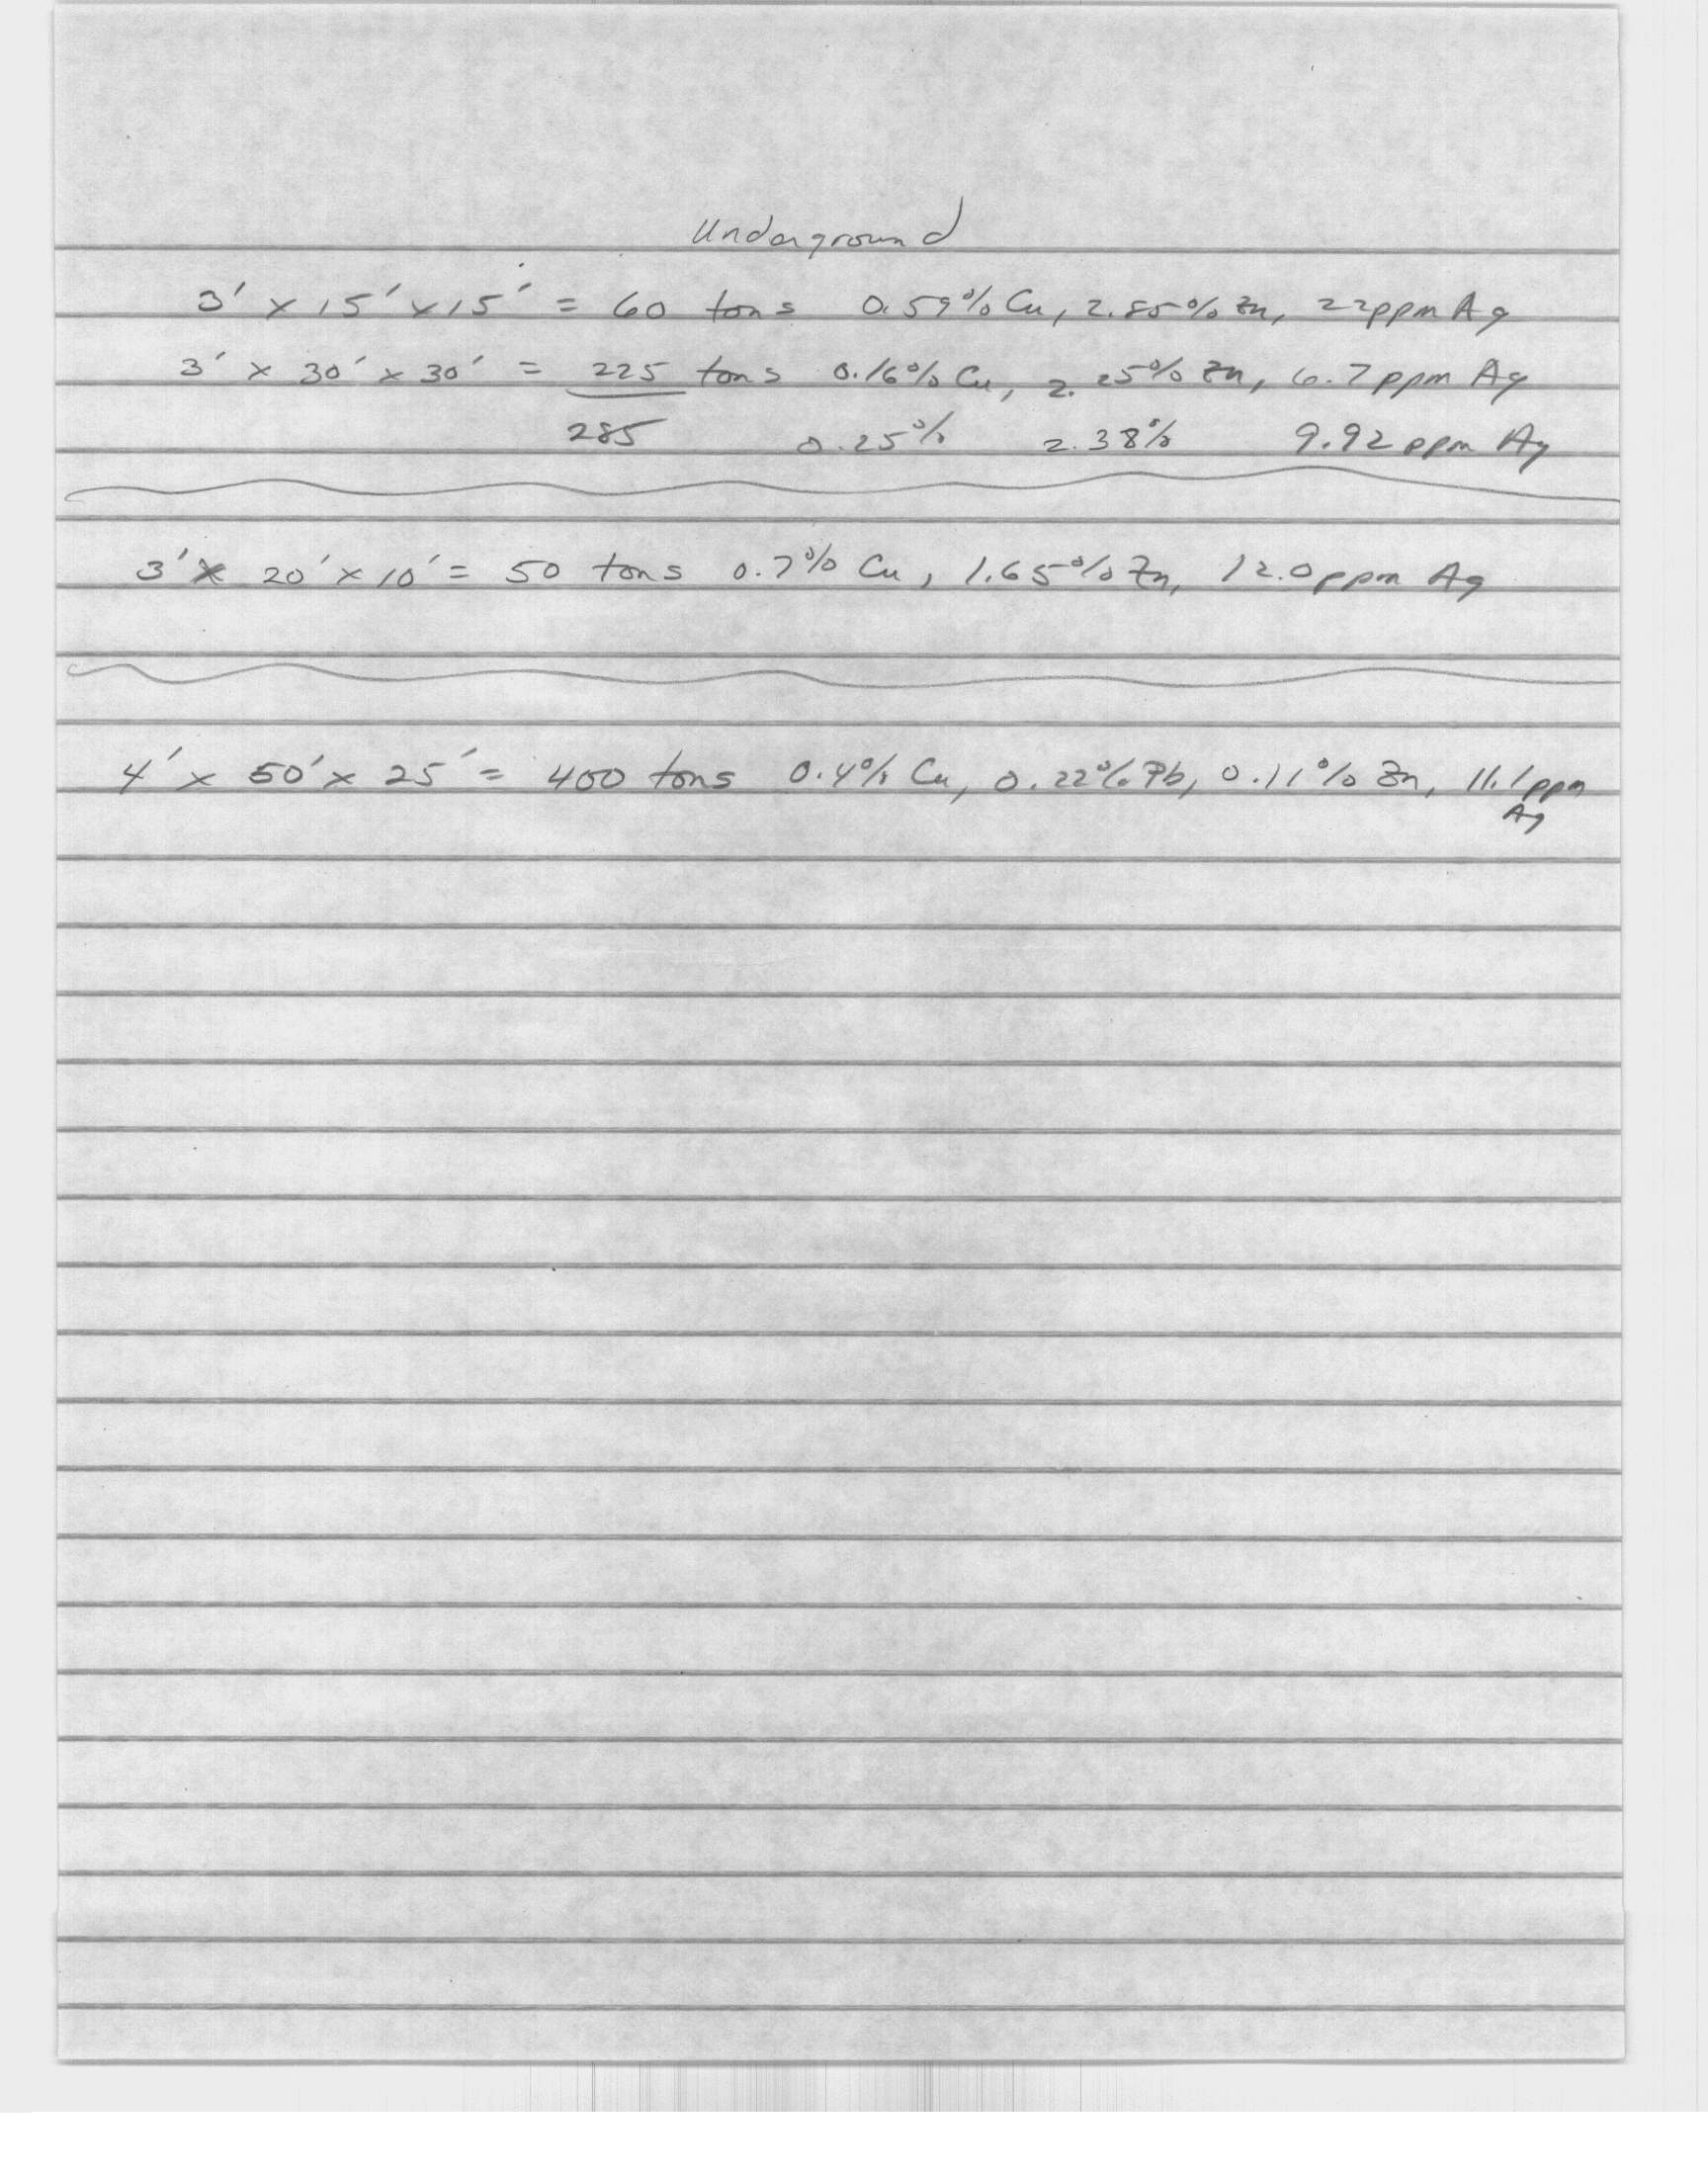 Underground
3' x 15' x 15' = 60 tons 0.59% Cu, 2.85% Zn, 22ppm Ag
3' x 30' x 30' = 225 tons 0.16% Cu, 2.25% Zn, 6.7ppm Ag
285 0.25% 2.38% 9.92 ppm Ag
3' x 20' x 10' = 50 tons 0.7% Cu, 1.65% Zn, 12.0ppm Ag
4' x 50' x 25' = 400 tons 0.4% Cu, 0.22% Pb, 0.11% Zn, 11.1ppm
Ag